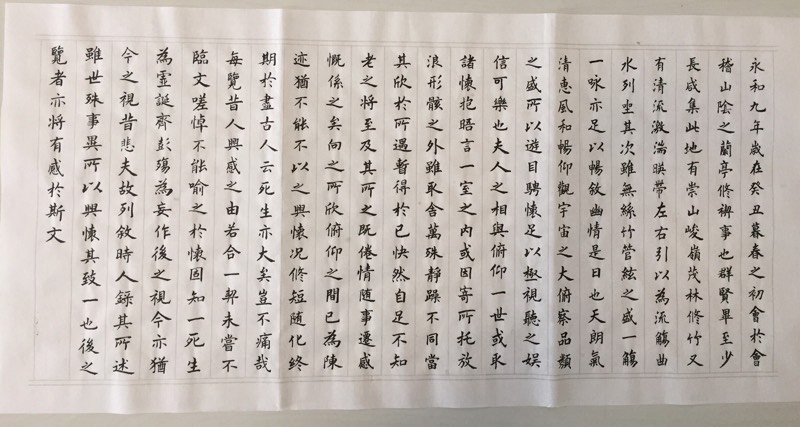 永和九年歲在癸丑暮春之初會於會
稽山陰之蘭亭修禊事也群賢畢至少
長咸集此地有崇山峻嶺茂林修竹又
有清流激湍暎帶左右引以為流觴曲
水列坐其次雖無絲竹管絃之盛一觴
一咏亦足以暢敘幽情是日也天朗氣
清惠風和暢仰觀宇宙之大俯察品類
之盛所以遊目騁懷足以極視聽之娛
信可樂也夫人之相與俯仰一世或取
諸懷抱晤言一室之內或因寄所托放
浪形骸之外雖取舍萬殊靜躁不同當
其欣於所遇暫得於己快然自足不知
老之將至及其所之既倦情隨事遷感
慨係之矣向之所欣俯仰之間已為陳
迹猶不能不以之興懷况修短隨化終
期於盡古人云死生亦大矣豈不痛哉
每覽昔人興感之由若合一契未嘗不
臨文嗟悼不能喻之於懷固知一死生
為虛誕齊彭殤為妄作後之視今亦猶
今之視昔悲夫故列敘時人錄其所述
雖世殊事異所以興懷其致一也後之
覽者亦將有感於斯文